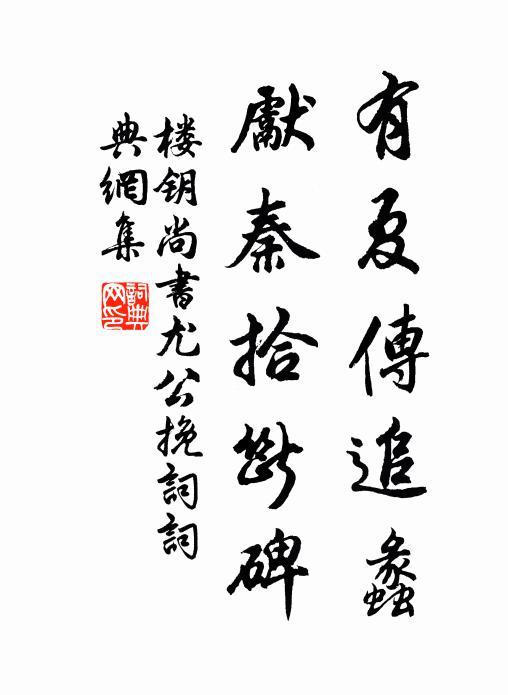 有夏傳追蠡
獻秦拾斷碑
楼钥尚書尤公挽詞詞
典網集
詞典
网印